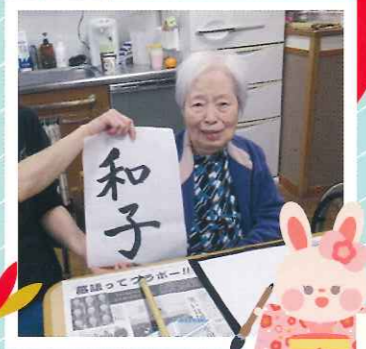 和子
ってブラボー!!